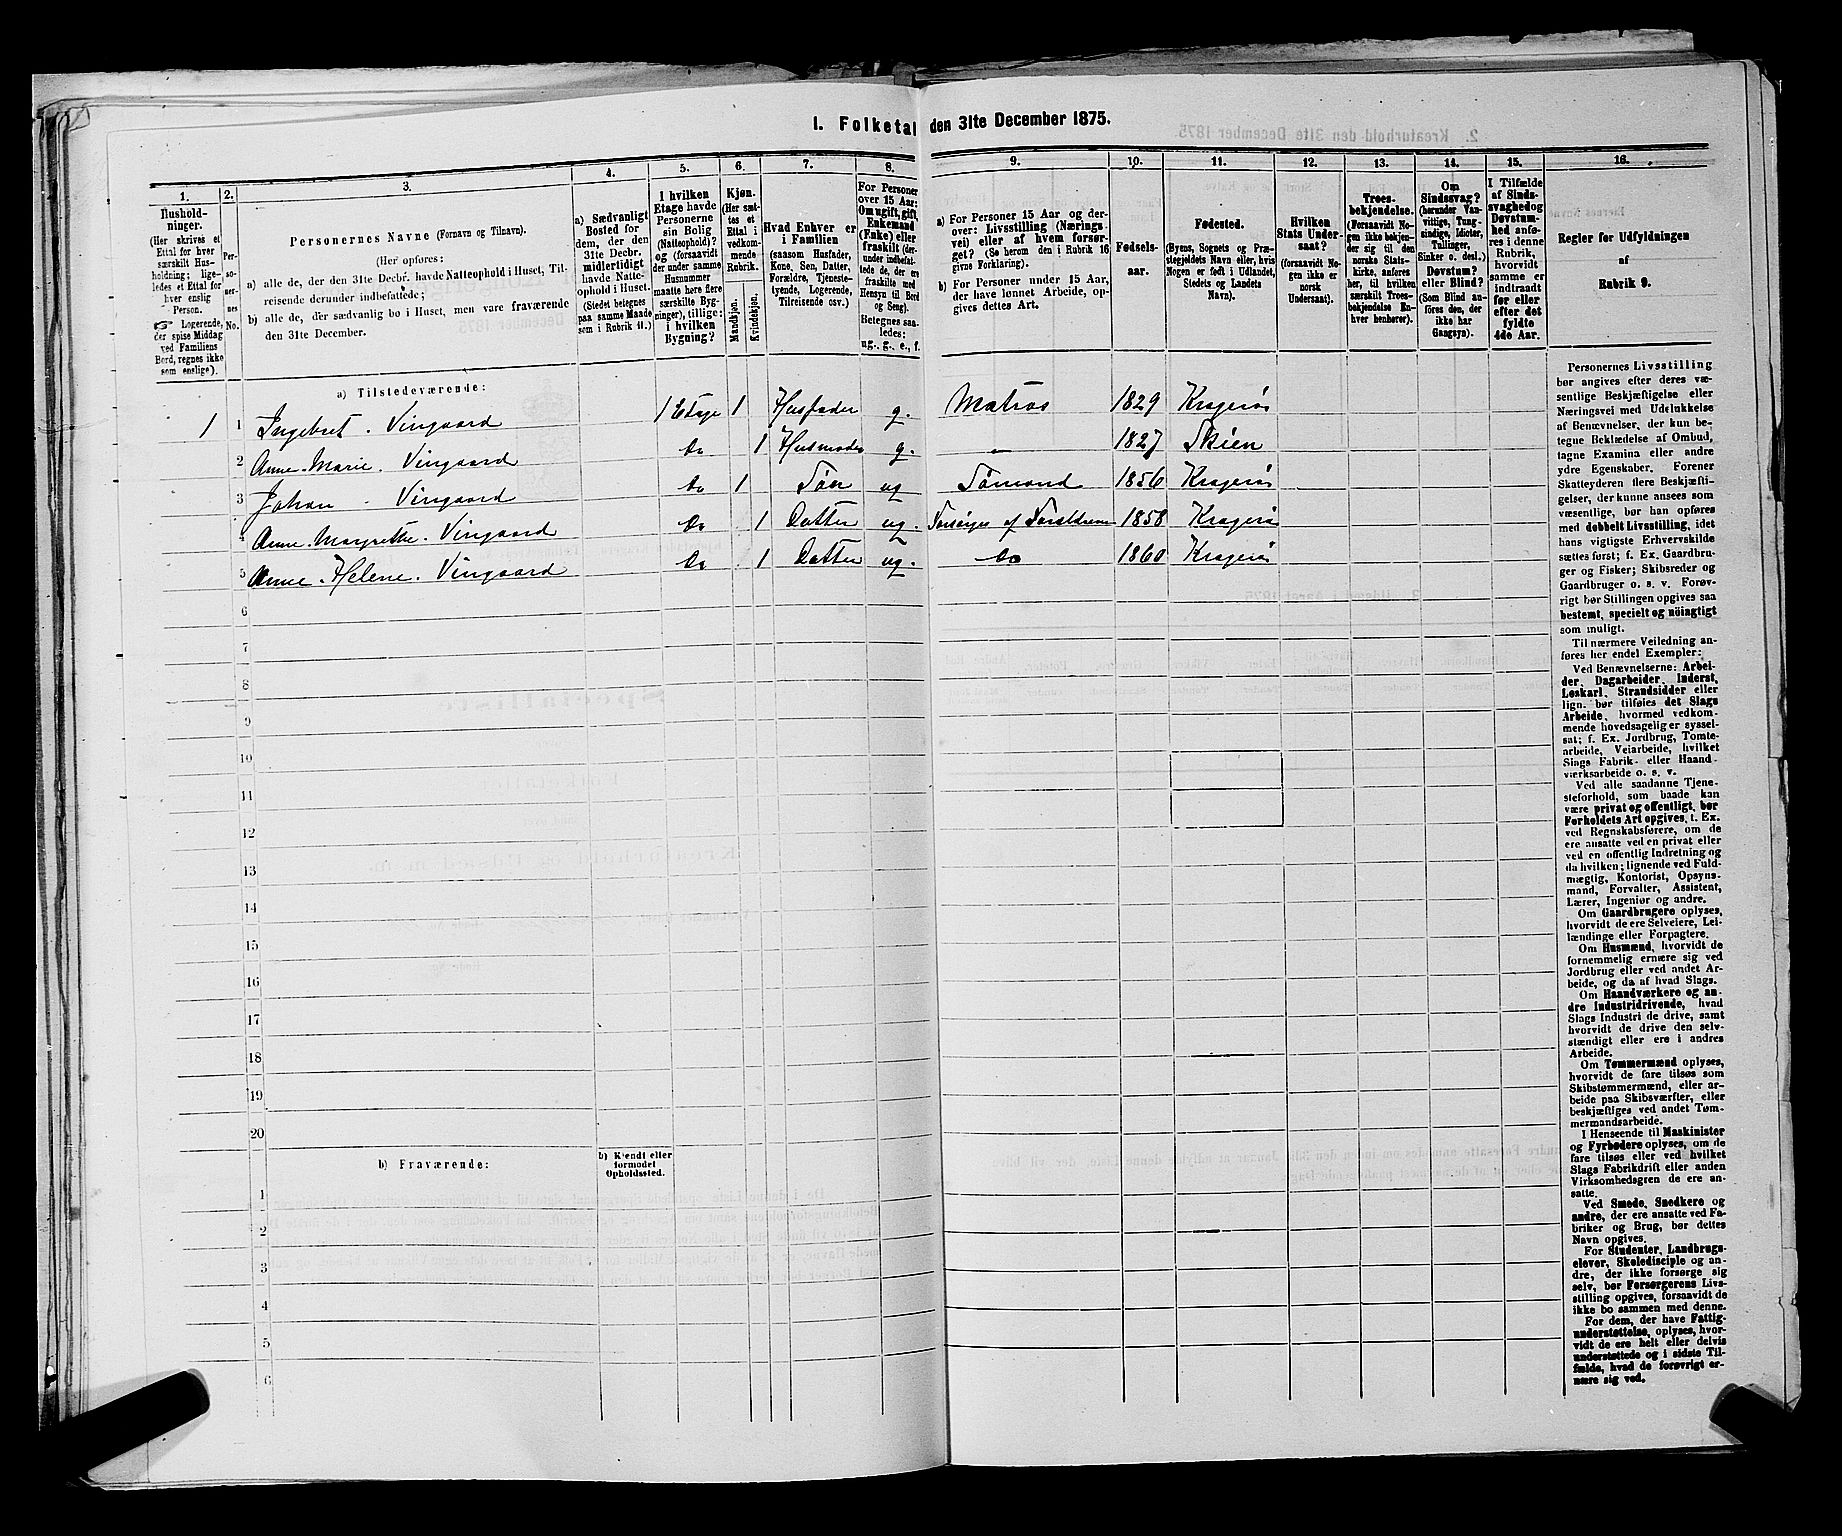 I. Folketal den 31te December 1875.
1.
2.
3.
4.
5.
6.
7.
8.
9.
10.
11.
12.
13.
14.
15.
16.
Hushold-
ninger.
(Her skrives et
Ettal for hver
særskilt Hus-
holdning; lige-
ledes et Ettal for
hver enslig
Person.
☞ Logerende,
der spise Middag
ved Familiens
Bord, regnes ikke
som enslige).
Per-
so-
ner-
nes
No.
Personernes Navne (Fornavn og Tilnavn).
(Her opføres:
a) alle de, der den 31te Decbr. havde Natteophold i Huset, Til-
reisende derunder indbefattede;
b) alle de, der sædvanlig bo i Huset, men vare fraværende
den 31te December.
a) Sædvanligt
Bosted for
dem, der den
31te Decbr.
midlertidigt
havde Natte-
ophold i Huset.
(Stedet betegnes
paa samme Maade
som i Rubrik 11.)
I hvilken
Etage havde
Personerne
sin Bolig
(Natteophold)?
og (forsaavidt
der under samme
Husnummer
maatte høre flere
særskilte Byg-
ninger), tillige:
i hvilken
Bygning?
Kjøn.
(Her sæt-
tes et
Ettal i
vedkom-
mende
Rubrik.
Mandkjøn.
Kvindekjøn.
Hvad Enhver er
i Familien
(saasom Husfader,
Kone, Søn, Datter,
Forældre, Tjeneste-
tyende, Logerende,
Tilreisende osv.)
For Personer
over 15 Aar:
Om ugift, gift,
Enkemand
(Enke) eller
fraskilt (der-
under indbefat-
tede de, der ere
fraskilte med
Hensyn til Bord
og Seng).
Betegnes saa-
ledes:
ug., g., e., f.
a) For Personer 15 Aar og der-
over: Livsstilling (Nærings-
vei) eller af hvem forsør-
get? (Se herom den i Rubrik 16
givne Forklaring).
b) For Personer under 15 Aar,
der have lønnet Arbeide, op-
gives dettes Art.
Fødsels-
aar.
Fødested.
(Byens, Sognets og Præ-
stegjeldets Navn eller, hvis
Nogen er født i Udlandet,
Stedets og Landets
Navn).
Hvilken
Stats Under-
saat?
(forsaavidt No-
gen ikke er
norsk
Undersaat).
Troes-
bekjendelse.
(Forsaavidt No-
gen ikke bekjen-
der sig til den
norske Stats-
kirke, anføres
her, til hvilken
særskilt Troes-
bekjendelse En-
hver henhører).
Om
Sindssvag?
(herunder Van-
vittige, Tung-
sindige, Idioter,
Tullinger,
Sinker o. desl.)
Døvstum?
eller Blind?
(Som Blind an-
føres den, der
ikke har
Gangsyn).
I Tilfælde
af Sinds-
svaghed og
Døvstum-
hed anfø-
res i denne
Rubrik,
hvorvidt
samme er
indtraadt
før eller
efter det
fyldte
4de Aar.
Regler for Udfyldningen
af
Rubrik 9.
a) Tilstedeværende:
1 1 Ingebret. Vingaard 1 Etage 1 Husfader g. Matros 1829 Kragerø
2 Anne. Marie. Vingaard Do 1 Husmoder g. – 1827 Skien
3 Johan. Vingaard Do 1 Søn ug Sømand 1856 Kragerø
4 Anne. Margrethe. Vingaard Do 1 Datter ug. Forsørges af Forældrene 1858 Kragerø
5 Anne. Helene. Vingaard Do 1 Datter ug. Do 1860 Kragerø
6
7
8
9
10
11
12
13
14
15
16
17
18
19
20
b) Fraværende:
b) Kjendt eller
formodet
Opholdssted.
1
2
3
4
5
6
Personernes Livsstilling
bør angives efter deres væ-
sentlige Beskjæftigelse eller
Næringsvei med Udelukkelse
af Benævnelser, der kun be-
tegne Beklædelse af Ombud,
tagne Examina eller andre
ydre Egenskaber. Forener
Skatteyderen flere Beskjæfti-
gelser, der kunne ansees som
væsentlige, bør han opføres
med dobbelt Livsstilling, idet
hans vigtigste Erhvervskilde
sættes først; f. Ex. Gaardbru-
ger og Fisker; Skibsreder og
Gaardbruger o. s. v. Forøv-
rigt bør Stillingen opgives saa
bestemt, specielt og nöiagtigt
som muligt.
Til nærmere Veiledning an-
føres her endel Exempler:
Ved Benævnelserne: Arbei-
der, Dagarbeider, Inderst,
Løskarl, Strandsidder eller
lign. bør tilføies det Slags
Arbeide, hvormed vedkom-
mende hovedsagelig er syssel-
sat; f. Ex. Jordbrug, Tomte-
arbeide, Veiarbeide, hvilket
Slags Fabrik- eller Haand-
værksarbeide o. s. v.
Ved alle saadanne Tjene-
steforhold, som baade kan
være privat og offentligt, bør
Forholdets Art opgives, t. Ex.
ved Regnskabsførere, om de
ere ansatte ved en privat eller
ved en offentlig Indretning og
da hvilken; lignende ved Fuld-
mægtig, Kontorist, Opsyns-
mand, Forvalter, Assistent,
Lærer, Ingeniør og andre.
Om Gaardbrugere oplyses,
hvorvidt de ere Selveiere, Lei-
lændinge eller Forpagtere.
Om Husmænd, hvorvidt de
fornemmelig ernære sig ved
Jordbrug eller ved andet Ar-
beide, og da af hvad Slags.
Om Haandværkere og an-
dre Industridrivende, hvad
Slags Industri de drive, samt
hvorvidt de drive den selv-
stændigt eller ere i andres
Arbeide.
Om Tømmermænd oplyses,
hvorvidt de fare tilsøs som
Skibstømmermænd, eller ar-
beide paa Skibsværfter, eller
beskjæftiges ved andet Tøm-
mermandsarbeide.
I Henseende til Maskinister
og Fyrbødere oplyses, om de
fare tilsøs eller ved hvilket
Slags Fabrikdrift eller anden
Virksomhedsgren de ere an-
satte.
Ved Smede, Snedkere og
andre, der ere ansatte ved Fa-
briker og Brug, bør dettes
Navn opgives.
For Studenter, Landbrugs-
elever, Skoledisciple og an-
dre, der ikke forsørge sig
selv, bør Forsørgerens Livs-
stilling opgives, forsaavidt de
ikke bo sammen med denne.
For dem, der have Fattig-
understøttelse, oplyses, hvor-
vidt de ere helt eller delvis
understøttede og i sidste Til-
fælde, hvad de forøvrigt er-
nære sig ved.